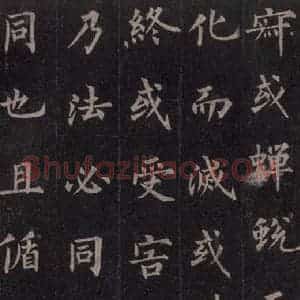 或蟬蛻
化而滅或
終或受害
乃法必同
同也且偱
Shufaziliao.COM